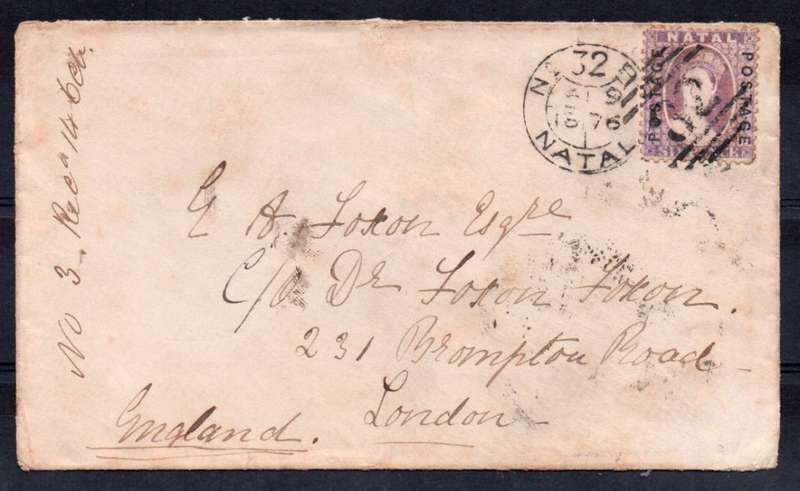 No 3. Recd 14 Oct.
NATAL
POSTAGE
POSTAGE
32
9
1876
NATAL
G A. Foxon Esqre
C/o Dr Foxon Foxon.
231 Brompton Road
London
England.